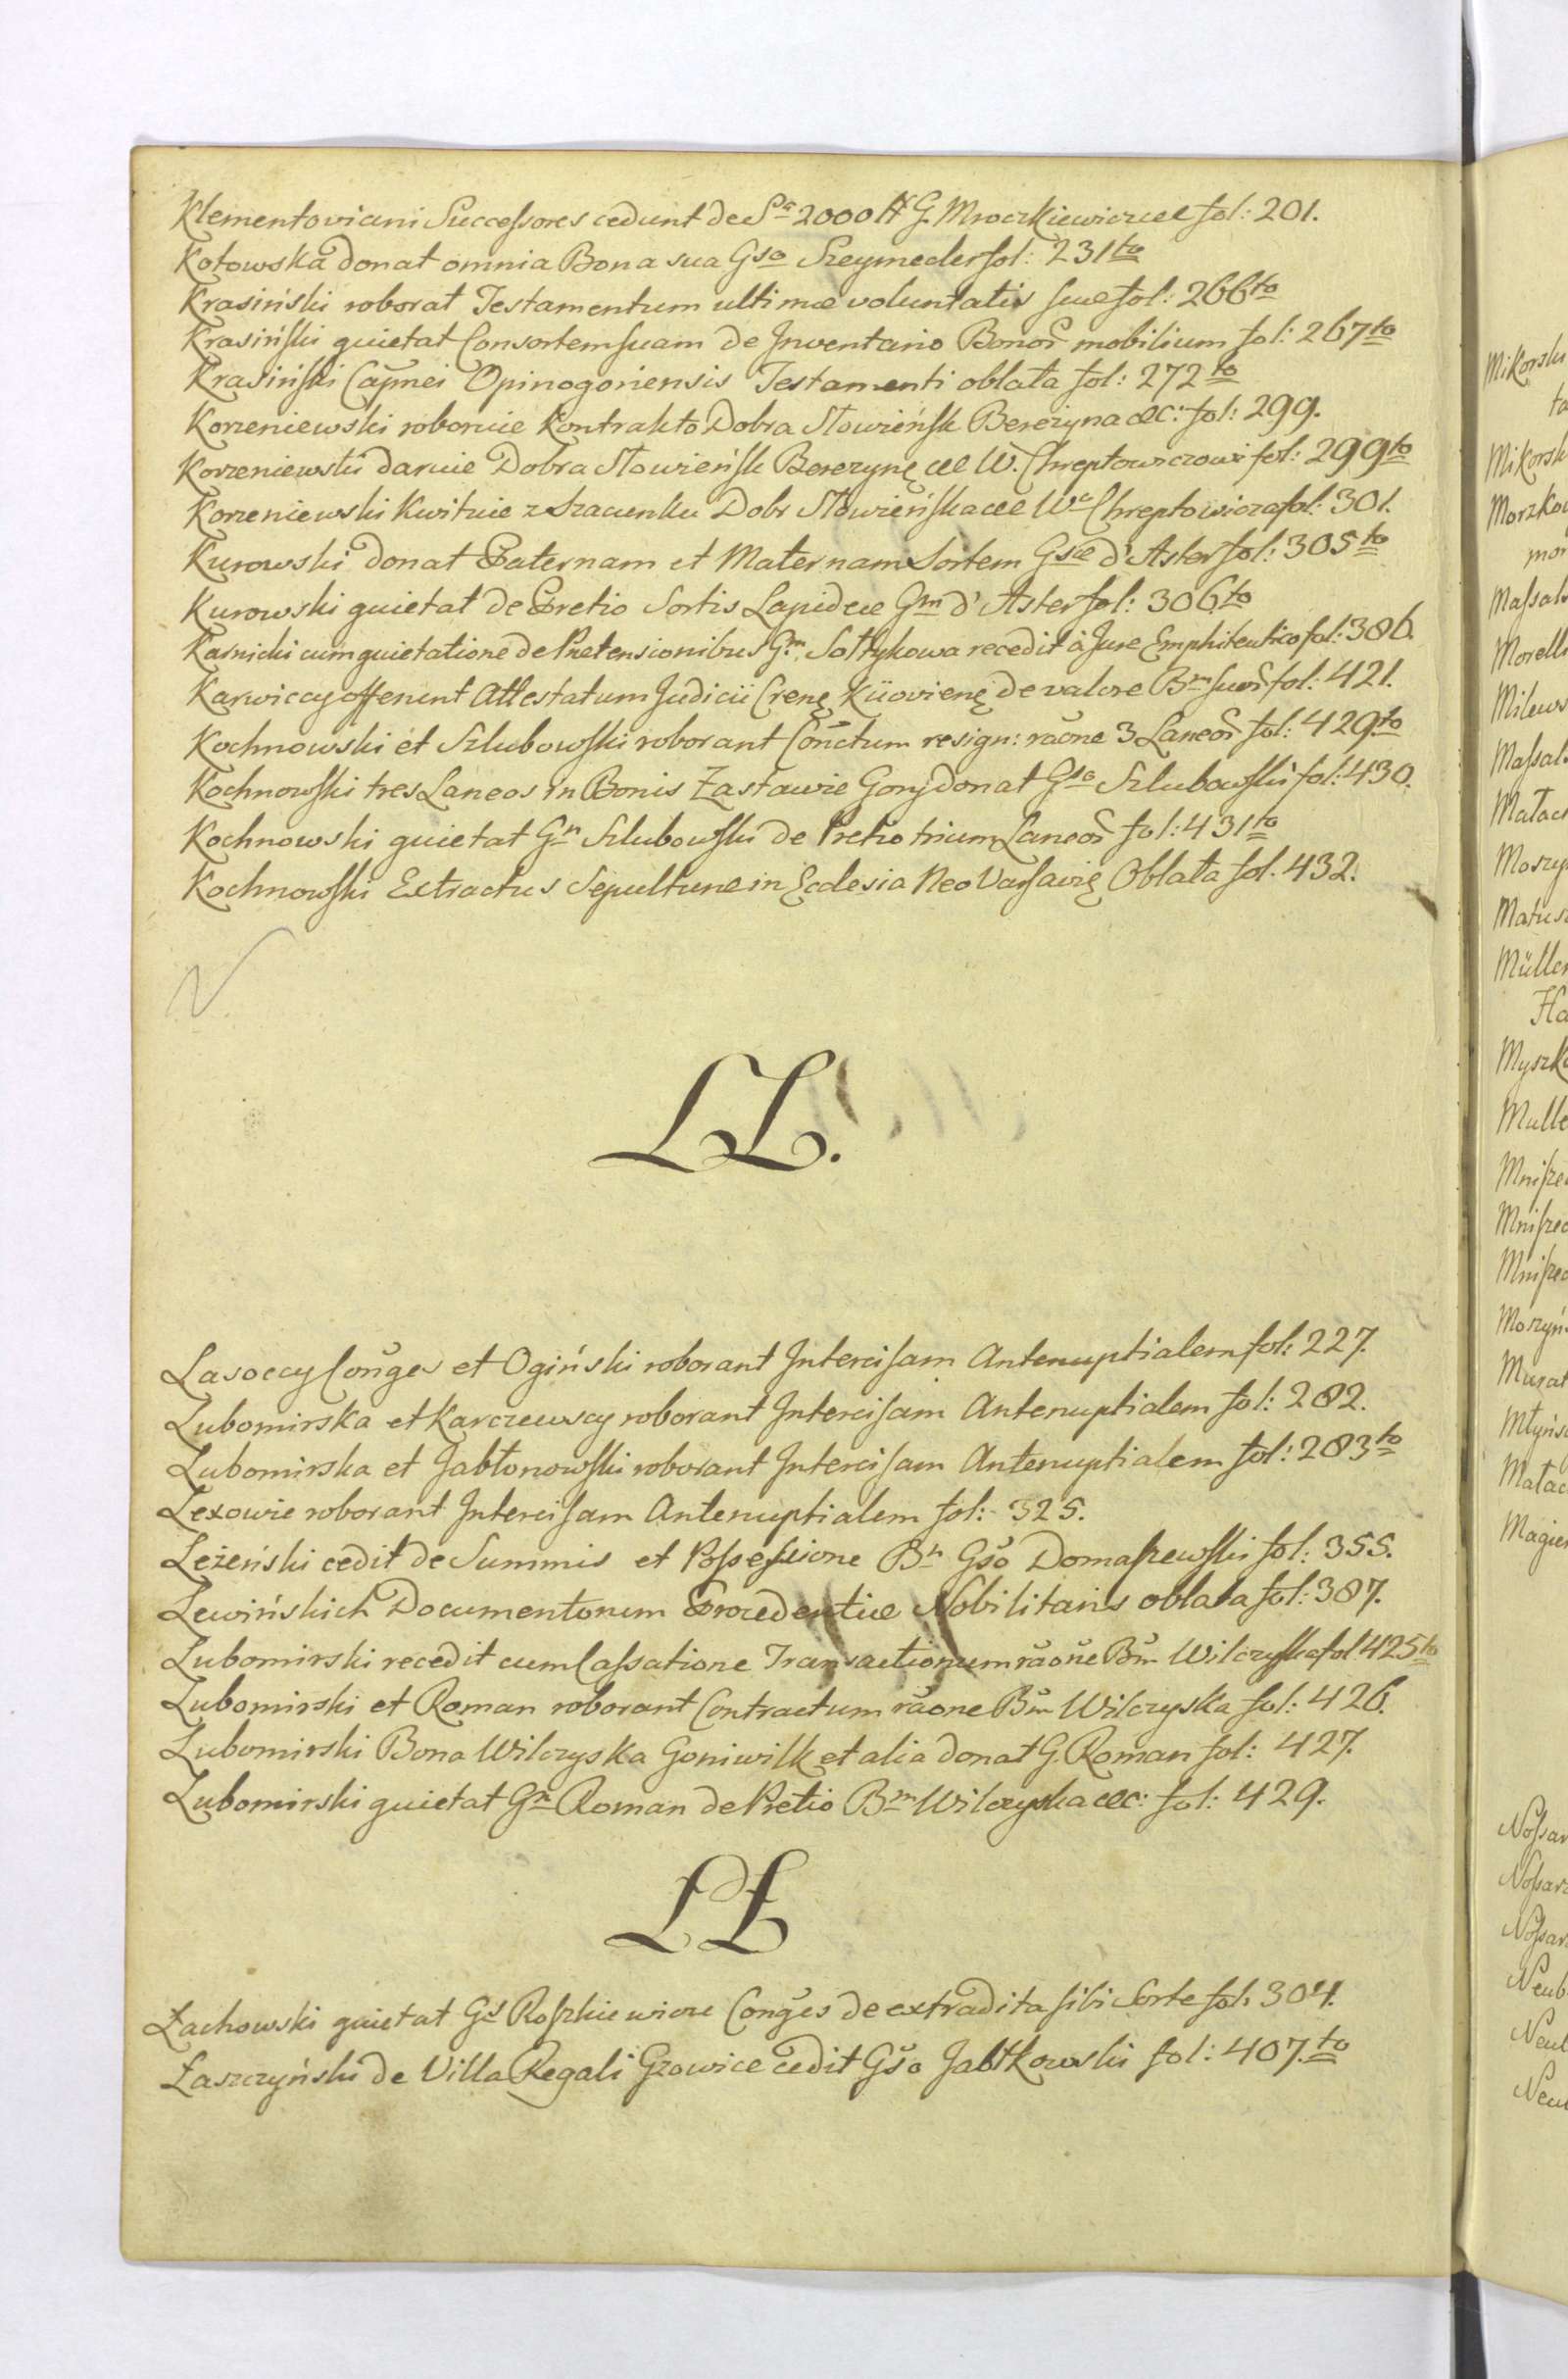 Klementoviani Successores cedunt de Sa 2000 ff G. Mroczkiewiczce fol: 201.
Kotowska donat omnia Bona sua Gso Szeymeder fol: 231to
Krasiński roborat Testamentum ultimæ voluntatis suæ fol: 266to
Krasiński quietat Consortem suam de Inventario Bonor̃ mobilium fol: 267to
Krasiński Capnei Opinogoriensis Testamenti oblata fol: 272to
Korzeniewski roboruie Kontrakt o Dobra Słowieńsk Berezyna &c: fol: 299.
Korzeniewski daruie Dobra Słowieńsk Berezynę &c W. Chreptowiczowi fol: 299to
Korzeniewski Kwituie z szacunku Dobr Słowieńska &c Wo Chreptowicza fol: 301.
Kurowski donat Paternam et Maternam Sortem Gsæ d'Aster fol: 305to
Kurowski quietat de Pretio Sortis Lapideæ Gm d'Aster fol: 306to
Kasnicki cum quietatione de Pretensionibus Gm. Sołtykowa recedit à Jure Emphiteutico fol: 386.
Karwiccy offerunt Attestatum Judicii Crenę Küovienę de valore Bm suor̃ fol: 421.
Kochnowski et Szlubowski roborant Cõnctum resign: raõne 3 Laneor̃ fol: 429to
Kochnowski tres Laneos in Bonis Zastawie Gorzj donat Gso Szlubowski fol: 430.
Kochnowski quietat Gm Szlubowski de Pretio trium Laneor̃ fol: 431to
Kochnowski Extractus Sepulturæ in Ecclesia Neo Varsavię Oblata fol. 432.
LL.
Lasoccy Conges et Ogiński roborant Intercisam Antenuptialem fol: 227.
Lubomirska et Karczewscy roborant Intercisam Antenuptialem fol: 282.
Lubomirska et Jabłonowski roborant Intercisam Antenuptialem fol: 283to
Lexowie roborant Intercisam Antenuptialem fol: 325.
Leżeński cedit de Summis et Possessione Bn Gso Domaszewski fol: 355.
Lewińskich Documentorum Procedentiæ Nobilitaris oblata fol: 387.
Lubomirski recedit cum Cassatione Transactionum raõne Bm Wilczyska fol 425to
Lubomirski et Roman roborant Contractum raõne Bm Wilczyska fol: 426.
Lubomirski Bona Wilczyska Goniwilk et alia donat G. Roman fol: 427.
Lubomirski quietat Gm Roman de Pretio Bm Wilczyska &c: fol: 429.
LŁ
Łachowski quietat Gs Roszkiewicze Conges de extradita sibi Sorte fol: 304.
Łaszczyński de Villa Regali Gzowice cedit Gso Jabłkowski fol: 407.to
Mikorski
Mikorsk
Morelli
Müller